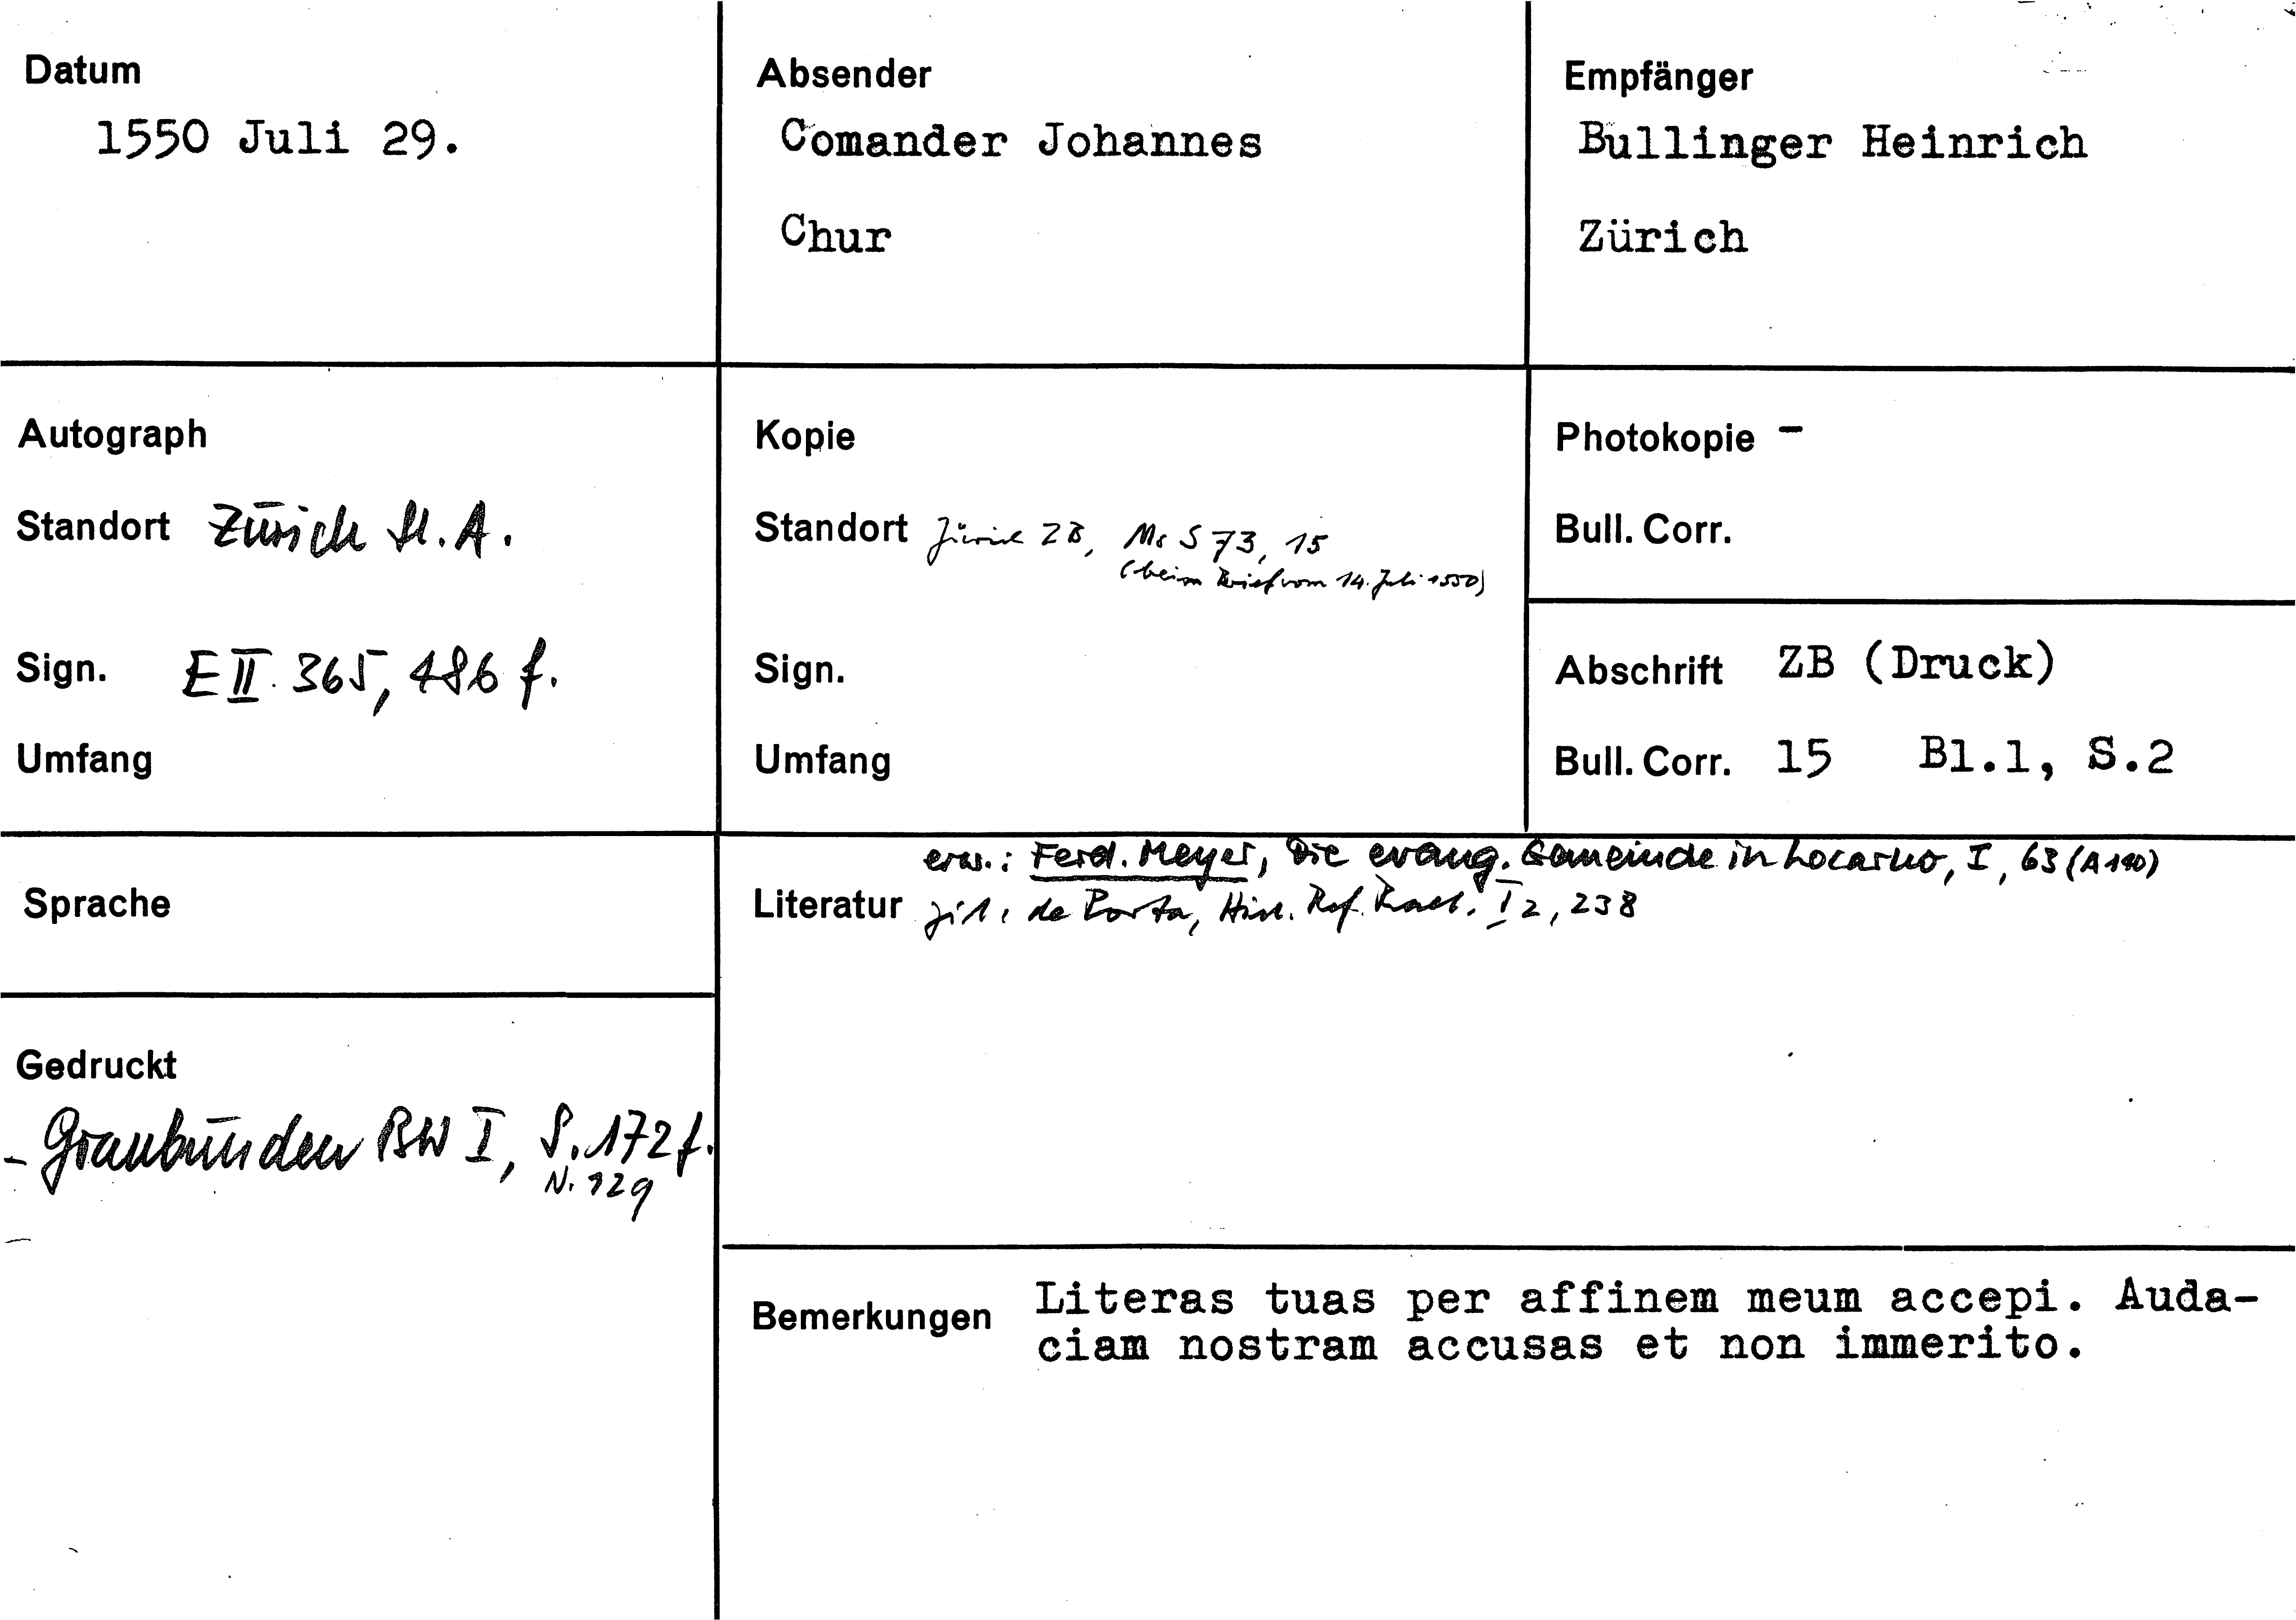 Datum
1550 Juli 29.
Absender
Comander Johannes
Chur
Empfänger
Bullinger Heinrich
Zürich
Autograph
Standort Zürich St. A.
Sign. E II 365, 486 f.
Umfang
Kopie
Standort Zürich ZB, Ms S 73, 15
(beim Brief vom 14. Juli 1550)
Sign.
Umfang
Photokopie -
Bull. Corr.
Abschrift ZB (Druck)
Bull. Corr. 15 Bl.1, S.2
Sprache
Gedruckt
- Graubünden BW I, S. 172 f.
N. 129
erw.: Ferd. Meyer, Die evang. Gemeinde in Locarno, I, 63 (A 190)
Literatur zit: de Porta, Hist. Ref. Raet. I 2, 238
Bemerkungen Literas tuas per affinem meum accepi. Auda-
ciam nostram accusas et non immerito.